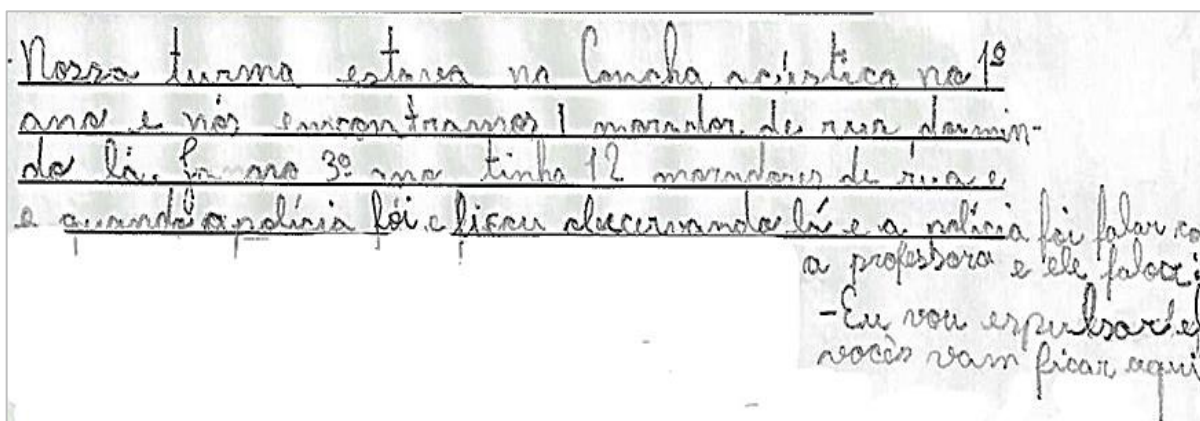 Nossa turma estava na Concha acústica no 1º
ano e nós encontramos 1 morador de rua dormin-
do lá. no 3º ano tinha 12 moradores de rua e
e quando a polícia foi e ficou obcervando lá e a polícia foi falar co
a professora e ele falou:
-Eu vou espulsar
vocês vam ficar aqui